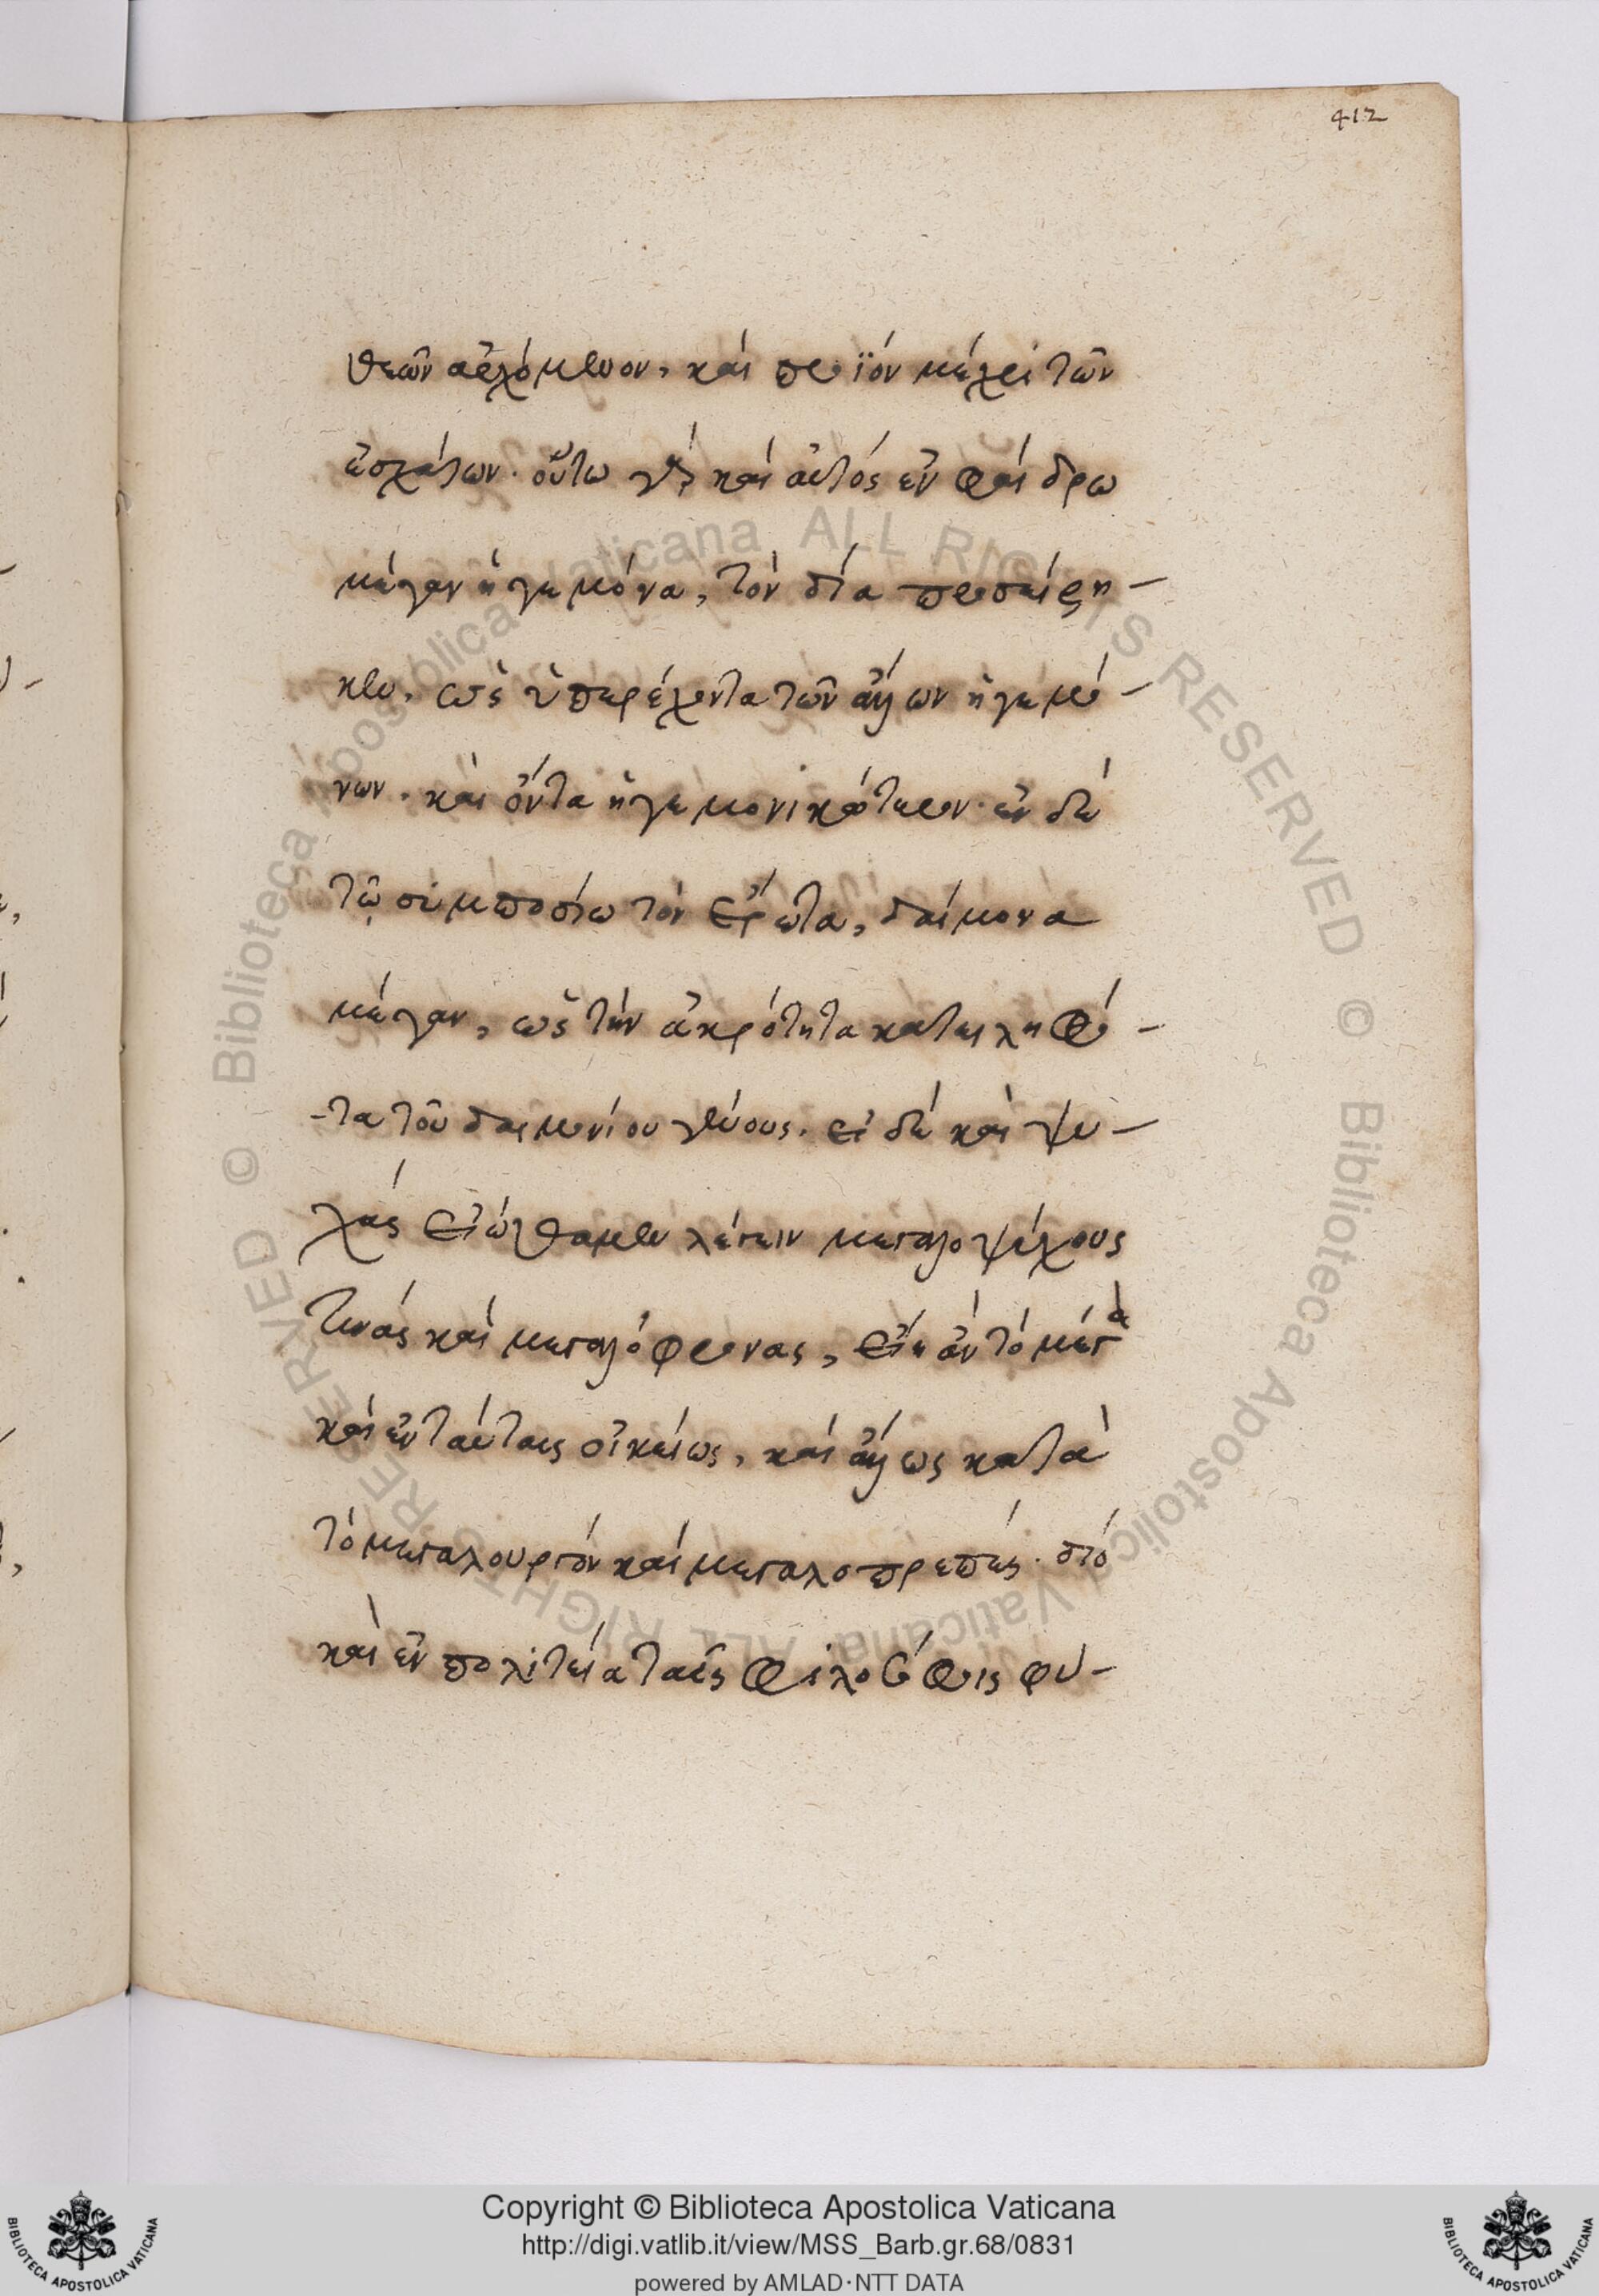 412
θεῶν ἀρχόμενον, καὶ προϊὸν μέχρι τῶν
ἐσχάτων. οὕτω γὰρ καὶ αὐτὸς ἐν φαίδρω
μέγαν ἡγεμόνα, τὸν δία προσείρη-
κεν, ὡς ὑπερέχοντα τῶν ἄλλων ἡγεμό-
νων. καὶ ὄντα ἡγεμονικώτερον. ἐν δὲ
τῷ συμποσίω τὸν ἔρωτα, δαίμονα
μέγαν, ὡς τὴν ἀκρότητα κατειληφό-
-τα τοῦ δαιμονίου γένους. εἰ δὲ καὶ ψυ-
χὰς εἰώθαμεν λέγειν μεγαλοψύχους
τινὰς καὶ μεγαλόφρονας, εἴη ἂν τὸ μέγα
καὶ ἐν ταύταις οἰκείως, καὶ ἄλλως κατὰ
τὸ μεγαλουργὸν καὶ μεγαλοπρεπές. διὸ
καὶ ἐν πολιτεία ταῖς φιλοσόφοις φύ-
© Biblioteca Apostolica Vaticana ALL RIGHTS RESERVED
© Biblioteca Apostolica Vaticana ALL RIGHTS RESERVED
Copyright © Biblioteca Apostolica Vaticana
http://digi.vatlib.it/view/MSS_Barb.gr.68/0831
powered by AMLAD·NTT DATA
BIBLIOTECA APOSTOLICA VATICANA
BIBLIOTECA APOSTOLICA VATICANA